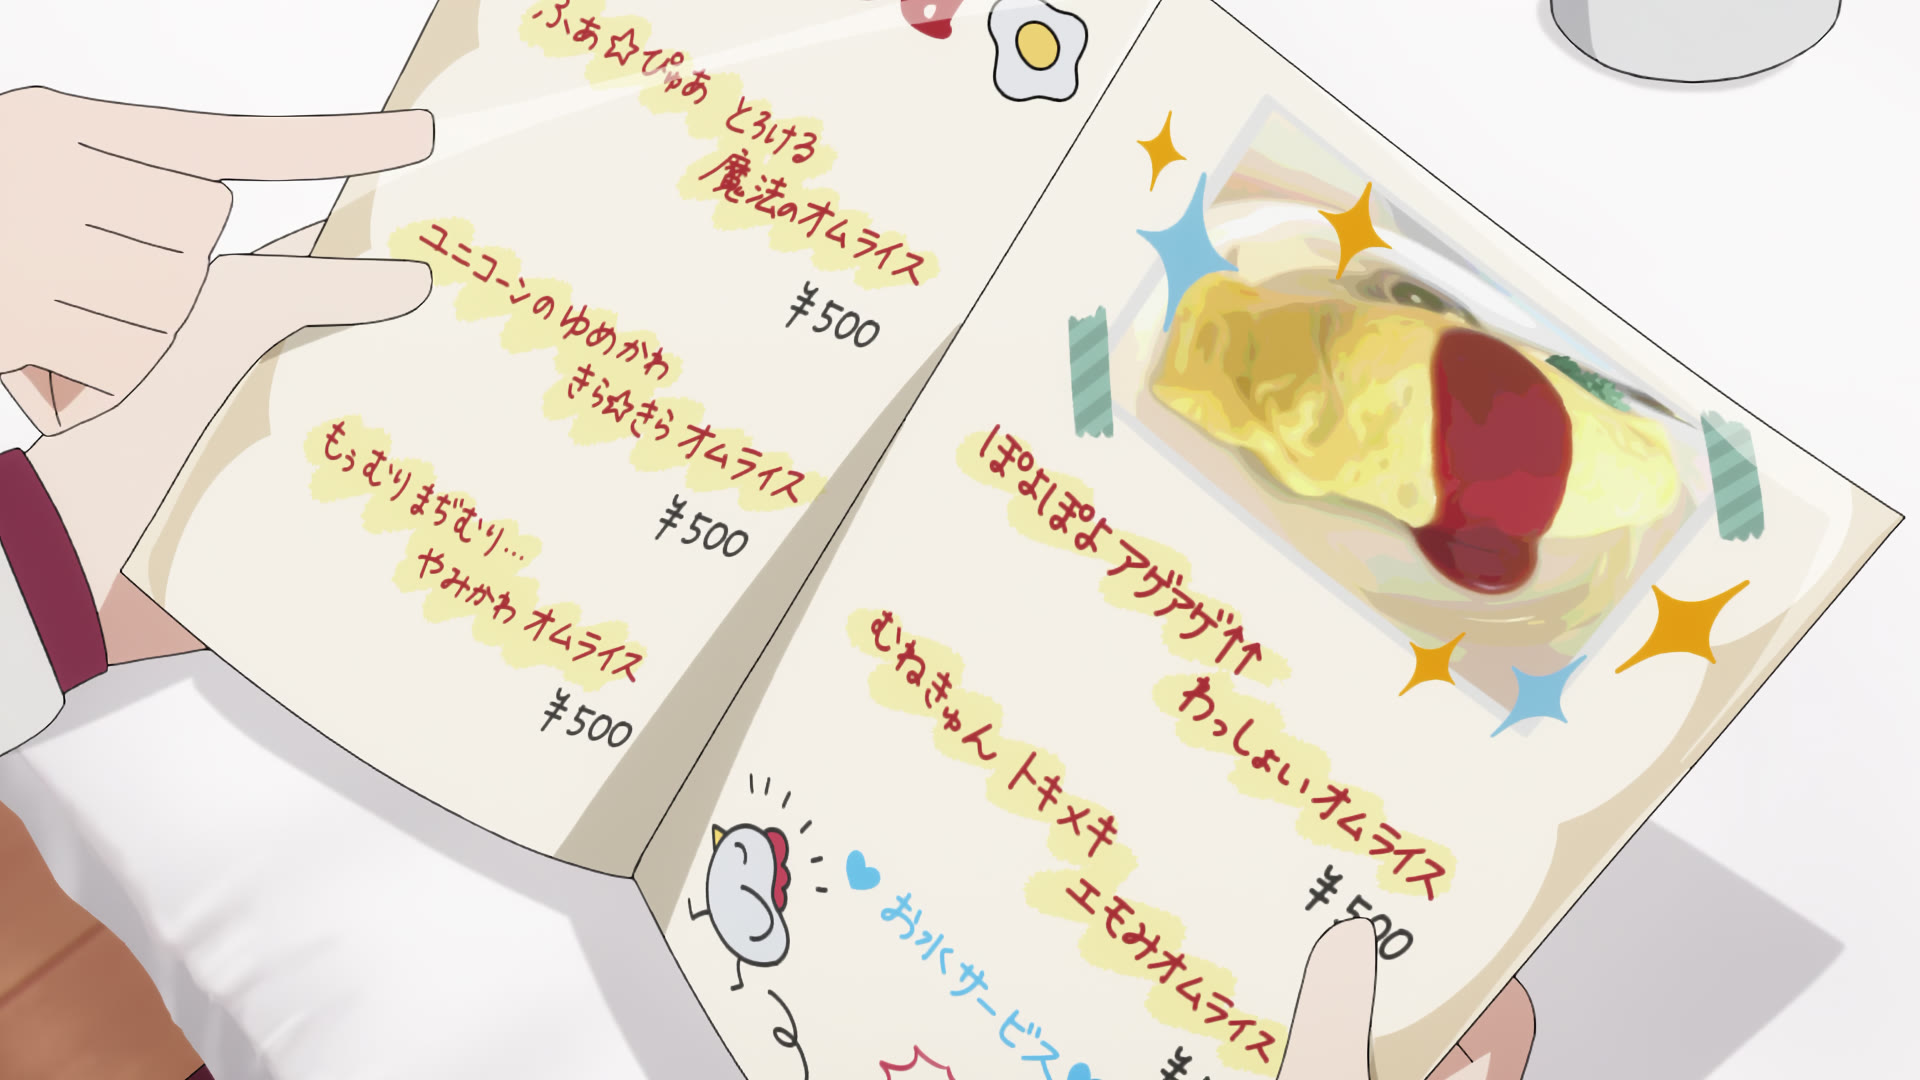 ふあ☆ぴゅあ とろける
魔法のオムライス
¥500
ユニコーンのゆめかわ
きら☆きら オムライス
¥500
もぅむりまぢむり…
やみかわ オムライス
¥500
ぽよぽよ アゲアゲ↑↑
わっしょいオムライス
¥500
むねきゅん トキメキ
エモみオムライス
¥
お水サービス